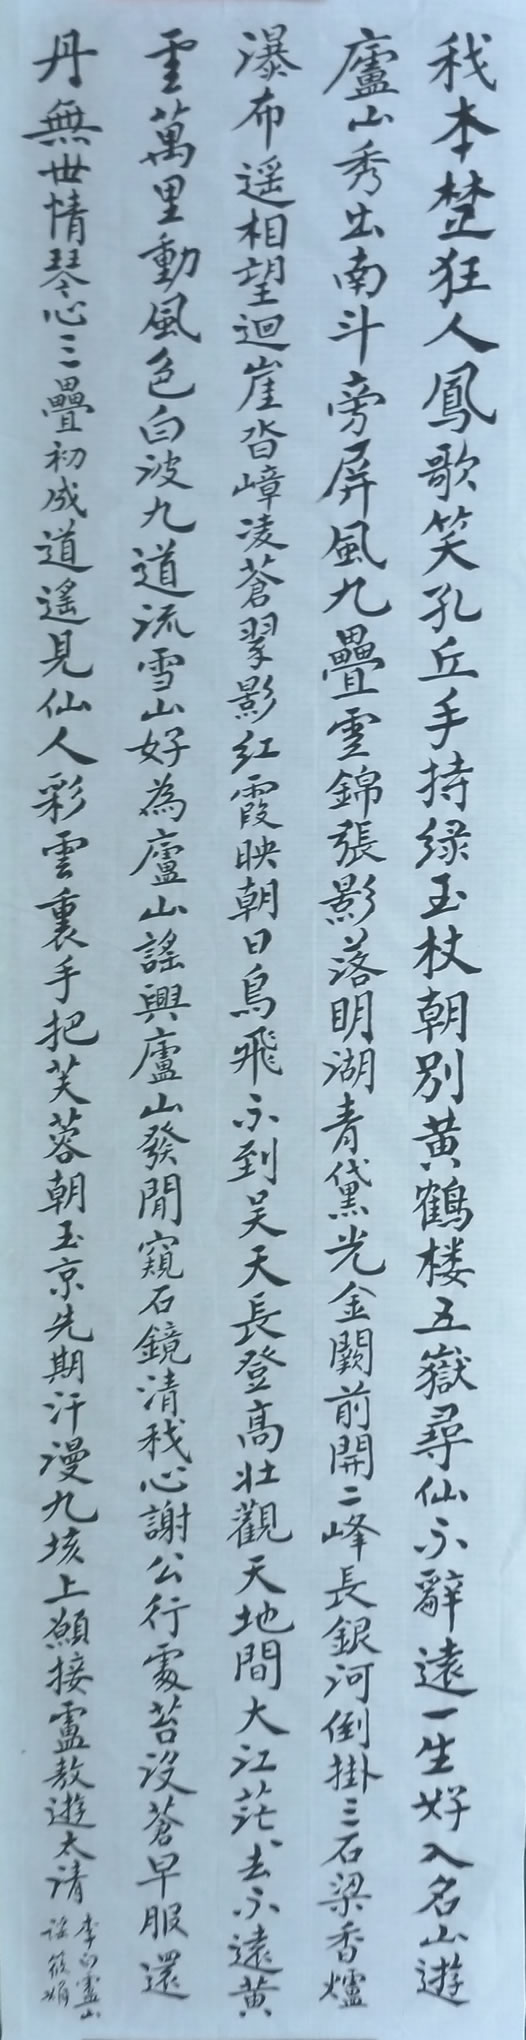 我本楚狂人鳳歌笑孔丘手持绿玉杖朝別黄鶴楼五嶽尋仙不辭遠一生好入名山遊
廬山秀出南斗旁屏風九疊雲錦張影落明湖青黛光金闕前開二峰長銀河倒掛三石梁香爐
瀑布遥相望迴崖沓嶂凌蒼翠影红霞映朝日鳥飛不到吴天長登高壮觀天地間大江茫茫去不遠黄
雲萬里動風色白波九道流雪山好為廬山謠興廬山發閒窺石鏡清我心謝公行處苔没蒼早服還
丹無世情琴心三疊初成道遥見仙人彩雲裏手把芙蓉朝玉京先期汗漫九垓上願接盧敖遊太清
李白廬山
謠 筱娟